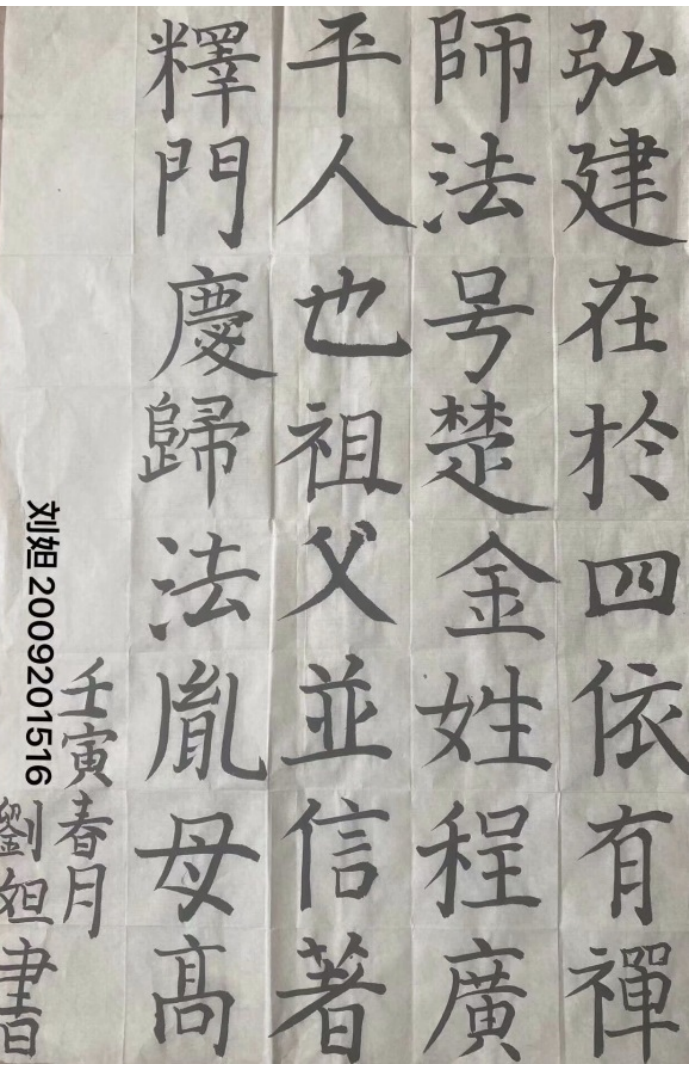 弘建在於四依有禪
師法号楚金姓程廣
平人也祖父並信著
釋門慶歸法胤母高
壬寅春月
劉妲書
刘妲 2009201516